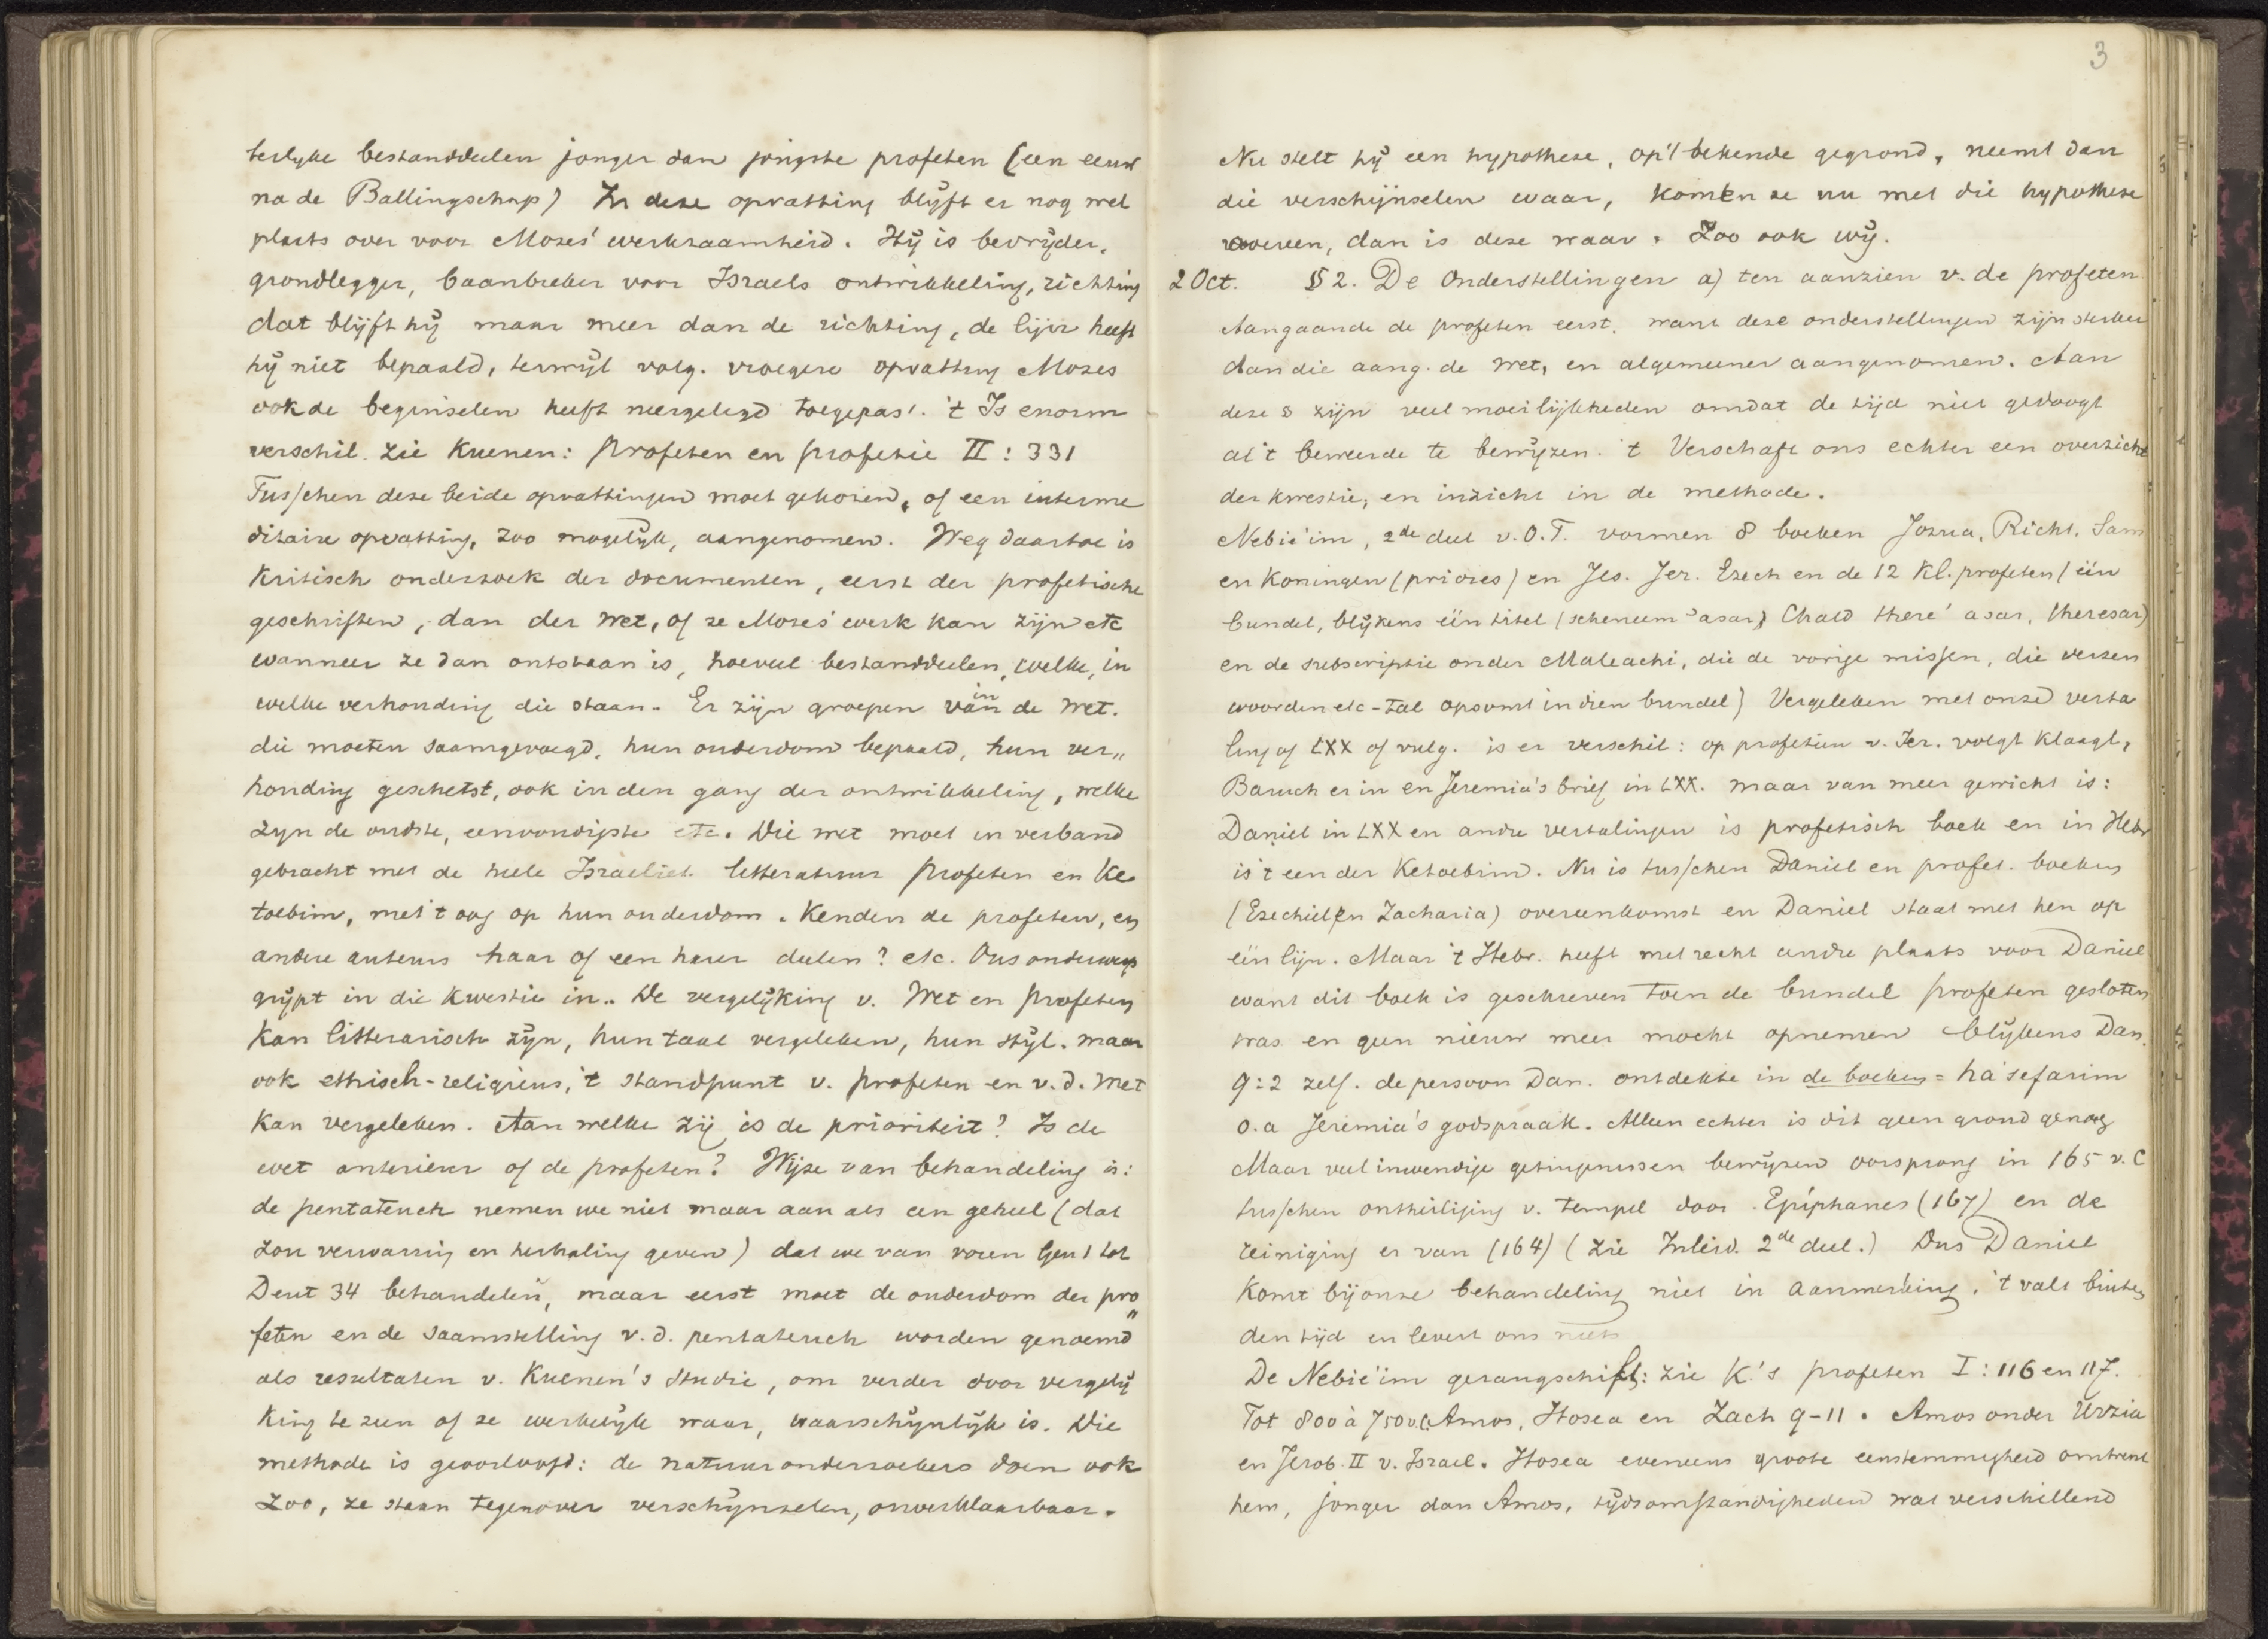 terlyke bestanddeelen jonger dan jongste profeten (een eeuw
na de Ballingschap) In deze opvatting blijft er nog wel
plaats over voor Mozes' werkzaamheid. Hij is bevrijder,
grondlegger, baanbreker voor Israels ontwikkeling, richting
dat blijft hij maar meer dan de richting, de lijn heeft
hij niet bepaald, terwijl volg. vroegere opvatting Mozes
ook de beginselen heeft neergelegd toegepas'. 't Is enorm
verschil. Zie Kuenen: Profeten en profetie II: 331
Tusschen deze beide opvattingen moet gekozen, of een interme
ditaire opvatting, zoo mogelijk, aangenomen. Weg daartoe is
Kritisch onderzoek der documenten, eerst der profetische
geschriften, dan der Wet, of ze Mozes' werk kan zijn etc
wanneer ze dan ontstaan is, hoeveel bestanddeelen, welke, in
welke verhouding die staan. Er zijn groepen van in de Wet.
die moeten saamgevoegd, hun ouderdom bepaald, hun ver„
houding geschetst, ook in den gang der ontwikkeling, welke
zyn de oudste, eenvoudigste etc. Die wet moet in verband
gebracht met de heele Israeliet. letteratuur Profeten en Ke
toebim, met 't oog op hun ouderdom. Kenden de profeten, en
andere auteurs haar of een harer deelen? etc. Ons onderwerp
grijpt in die kwestie in. De vergelijking v. Wet en Profeten
kan litterarisch zijn, hun taal vergeleken, hun stijl. maar
ook ethisch-religieus, 't standpunt v. profeten en v. d. Wet
kan vergeleken. Aan welke zij is de prioriteit? Is de
wet anterieur of de profeten? Wijze van behandeling is:
de pentateuch nemen we niet maar aan als een geheel (dat
zou verwarring en herhaling geven) dat we van voren Gen 1 tot
Deut 34 behandelen, maar eerst moet de ouderdom der pro„
feten en de saamstelling v. d. pentateuch worden genoemd
als resultaten v. Kuenen's studie, om verder door vergelij
king te zien of ze werkelijk waar, waarschijnlijk is. Die
methode is geoorloofd: de natuuronderzoekers doen ook
Zoo, ze staan tegenover verschijnselen, onverklaarbaar.
3
Nu stelt hij een hypothese, op 't bekende gegrond, neemt dan
die verschijnselen waar, komen ze nu met die hypothese
overeen, dan is deze waar. Zoo ook wij.
2 Oct. § 2. De Onderstellingen a) ten aanzien v. de profeten
Aangaande de profeten eerst, want deze onderstellingen zijn sterker
dan die aang. de wet, en algemeener aangenomen. Aan
deze § zijn veel moeilijkheden omdat de tijd niet gedoogt
al 't beweerde te bewijzen. 't Verschaft ons echter een overzicht
der kwestie, en inzicht in de methode.
Nebie'im, 2de deel v. O.T. vormen 8 boeken Jozua, Richt. Sam
en Koningen (priores) en Jes. Jer. Ezech en de 12 Kl. profeten (één
bundel, blijkens één titel (scheneem 'asar) Chald there' asar, theresar)
en de subscriptie onder Maleachi, die de vorige missen, die verzen
woorden etc-tal opsomt in dien bundel) Vergeleken met onze verta
ling of LXX of vulg. is er verschil: op profetieën v. Jer. volgt Klaagl,
Baruch er in en Jeremia's brief in LXX. maar van meer gewicht is:
Daniel in LXX en andre vertalingen is profetisch boek en in Hebr
is 't een der Ketoebim. Nu is tusschen Daniel en profet. boeken
(Ezechiel en Zacharia) overeenkomst en Daniel staat met hen op
één lijn. Maar 't Hebr. heeft met recht andre plaats voor Daniel
want dit boek is geschreven toen de bundel profeten gesloten
was en geen nieuw meer mocht opnemen blijkens Dan.
9:2 zelf. de persoon Dan. ontdekte in de boeken = ha'sefarim
o.a Jeremia's godspraak. Alleen echter is dit geen grond genoeg
Maar veel inwendige getuigenissen bewijzen oorsprong in 165 v. C
tusschen ontheiliging v. tempel door Epiphanes (167) en de
reiniging er van (164) (zie Inleid. 2de deel.) Dus Daniel
komt bij onze behandeling niet in aanmerking, 't valt buiten
den tijd en levert ons niets
De Nebie'im gerangschikt: zie K.'s profeten I: 116 en 117.
Tot 800 à 750 v.C. Amos, Hosea en Zach 9-11. Amos onder Uzzia
en Jerob. II v. Israel. Hosea eveneens groote eenstemmigheid omtrent
hem, jonger dan Amos, tijdsomstandigheden wat verschillend